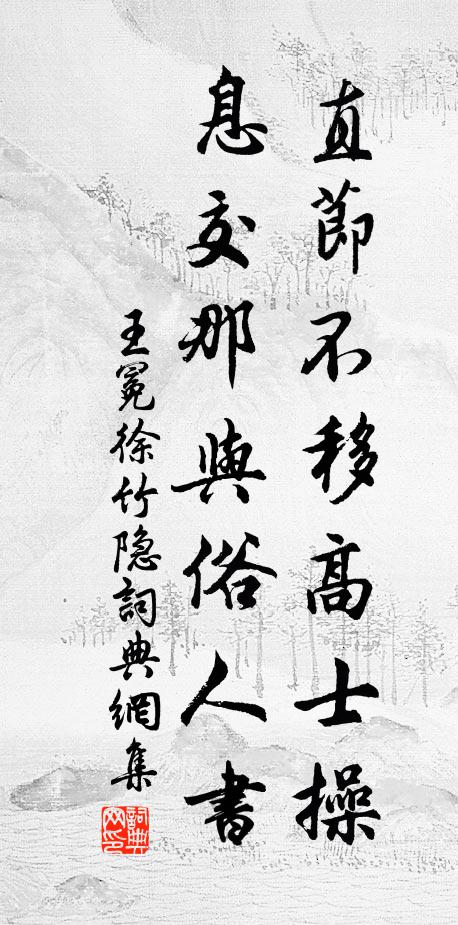 直節不移高士操
息交那與俗人書
王冕徐竹隐詞典網集
詞典网印